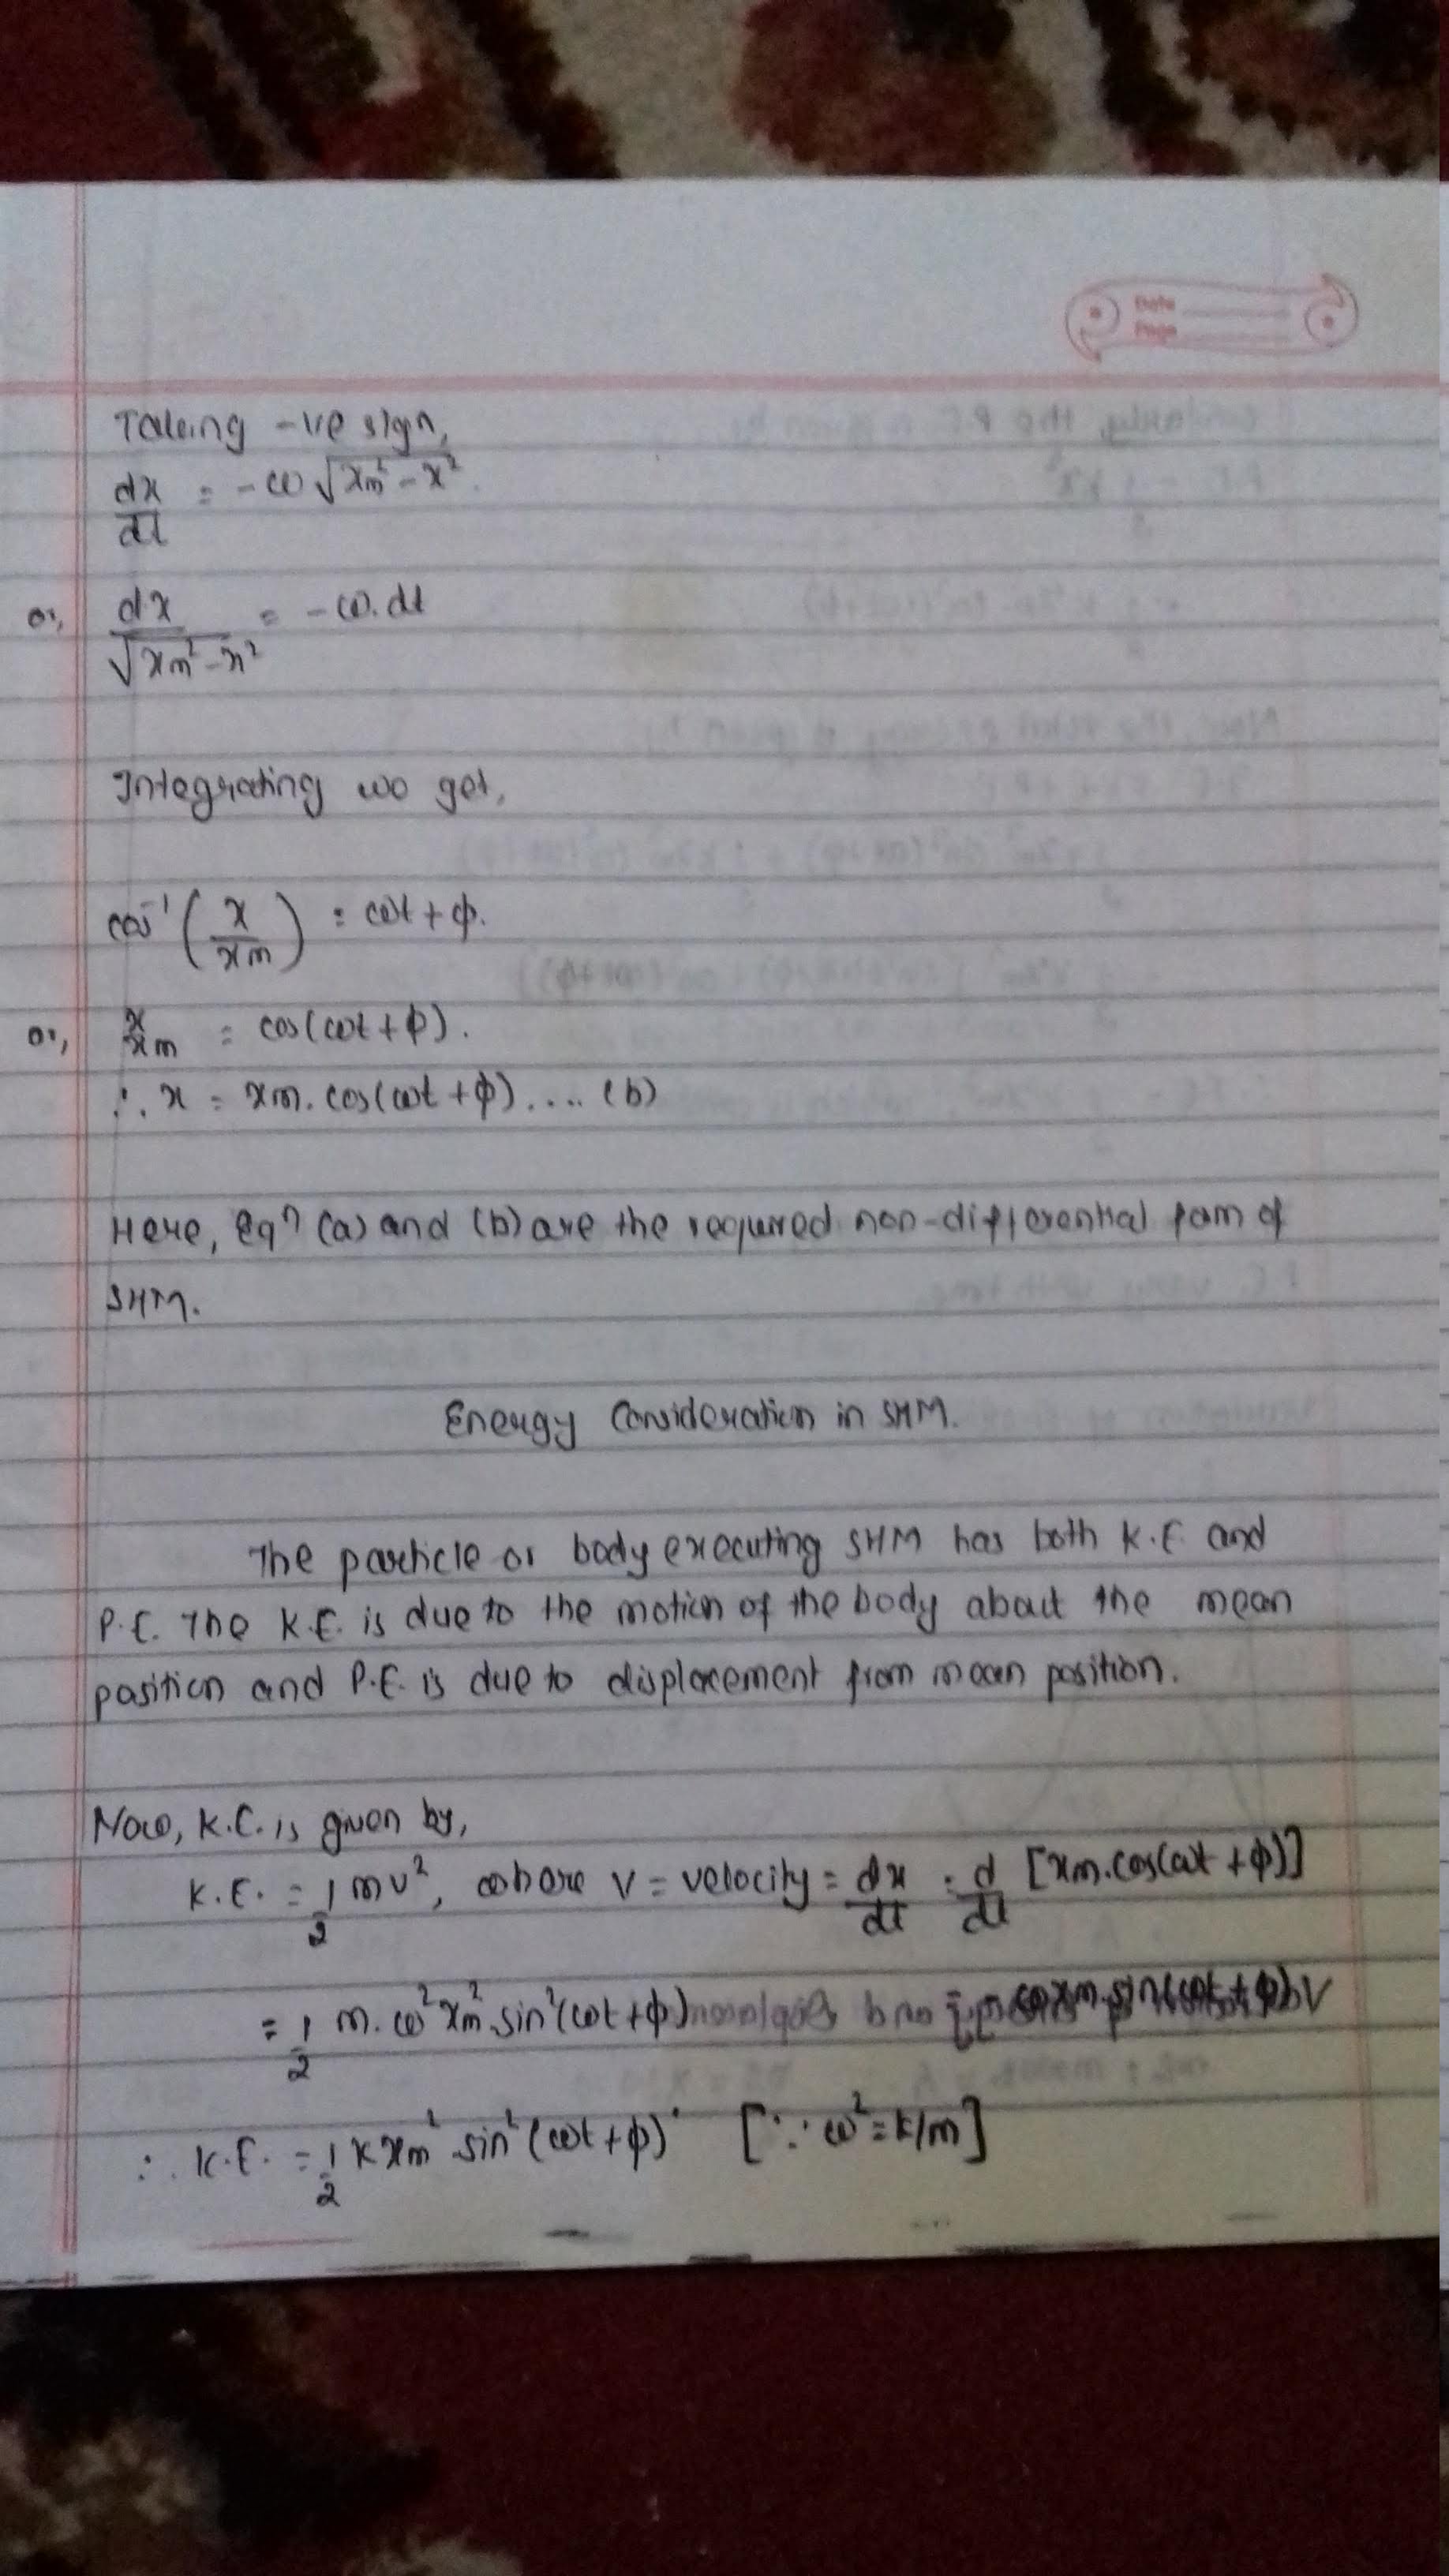 Date
Page
Taking -ve sign,
dx/dt = -ω√(xm² - x²)
or, dx/√(xm² - x²) = -ω.dt
Integrating we get,
cos⁻¹(x/xm) = ωt + φ.
or, x/xm = cos(ωt + φ).
∴ x = xm. cos(ωt + φ).... (b)
Here, Eqⁿ (a) and (b) are the required non-differential form of
SHM.
Energy Consideration in SHM.
The particle or body executing SHM has both K.E and
P.E. The K.E. is due to the motion of the body about the mean
position and P.E. is due to displacement from mean position.
Now, K.E. is given by,
K.E. = 1/2 mv², where v = velocity = dx/dt = d/dt [xm.cos(ωt + φ)]
= 1/2 m.ω²xm².sin²(ωt + φ)
∴ K.E. = 1/2 K xm² sin²(ωt + φ) [∵ ω² = k/m]